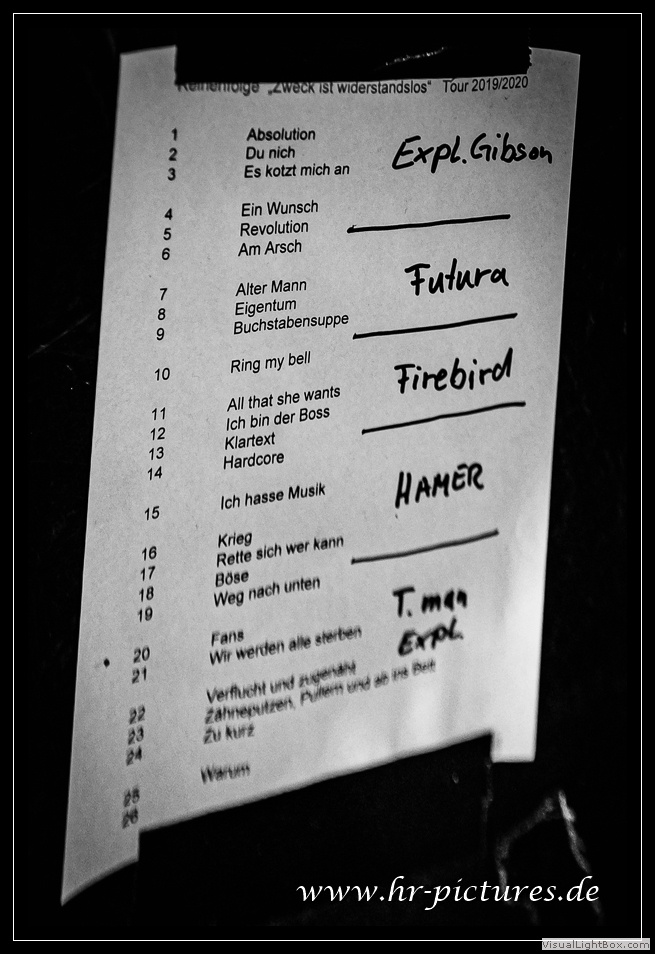 Reihenfolge „Zweck ist widerstandslos“ Tour 2019/2020
1 Absolution
2 Du nich
3 Es kotzt mich an
Expl. Gibson
4 Ein Wunsch
5 Revolution
6 Am Arsch
7 Alter Mann
8 Eigentum
9 Buchstabensuppe
Futura
10 Ring my bell
11 All that she wants
12 Ich bin der Boss
13 Klartext
14 Hardcore
Firebird
15 Ich hasse Musik
HAMER
16 Krieg
17 Rette sich wer kann
18 Böse
19 Weg nach unten
20 Fans
21 Wir werden alle sterben
T. man
Expl.
22 Verflucht und zugenäht
23 Zähneputzen, Pullern und ab ins Bett
24 Zu kurz
25 Warum
26
www.hr-pictures.de
VisualLightBox.com